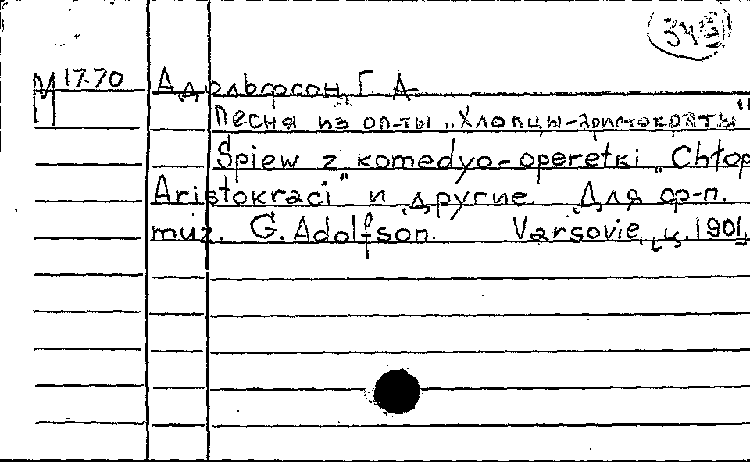 343
М 17.70 Адольфсон, Г. А.
Песня из оп-ты „Хлопцы-аристократы"
Śpiew z komedyo-operetki „Chłop
Aristokraci" и другие. Для ф-п.
muz. G. Adolfson. Varsovie, ц. 1901.